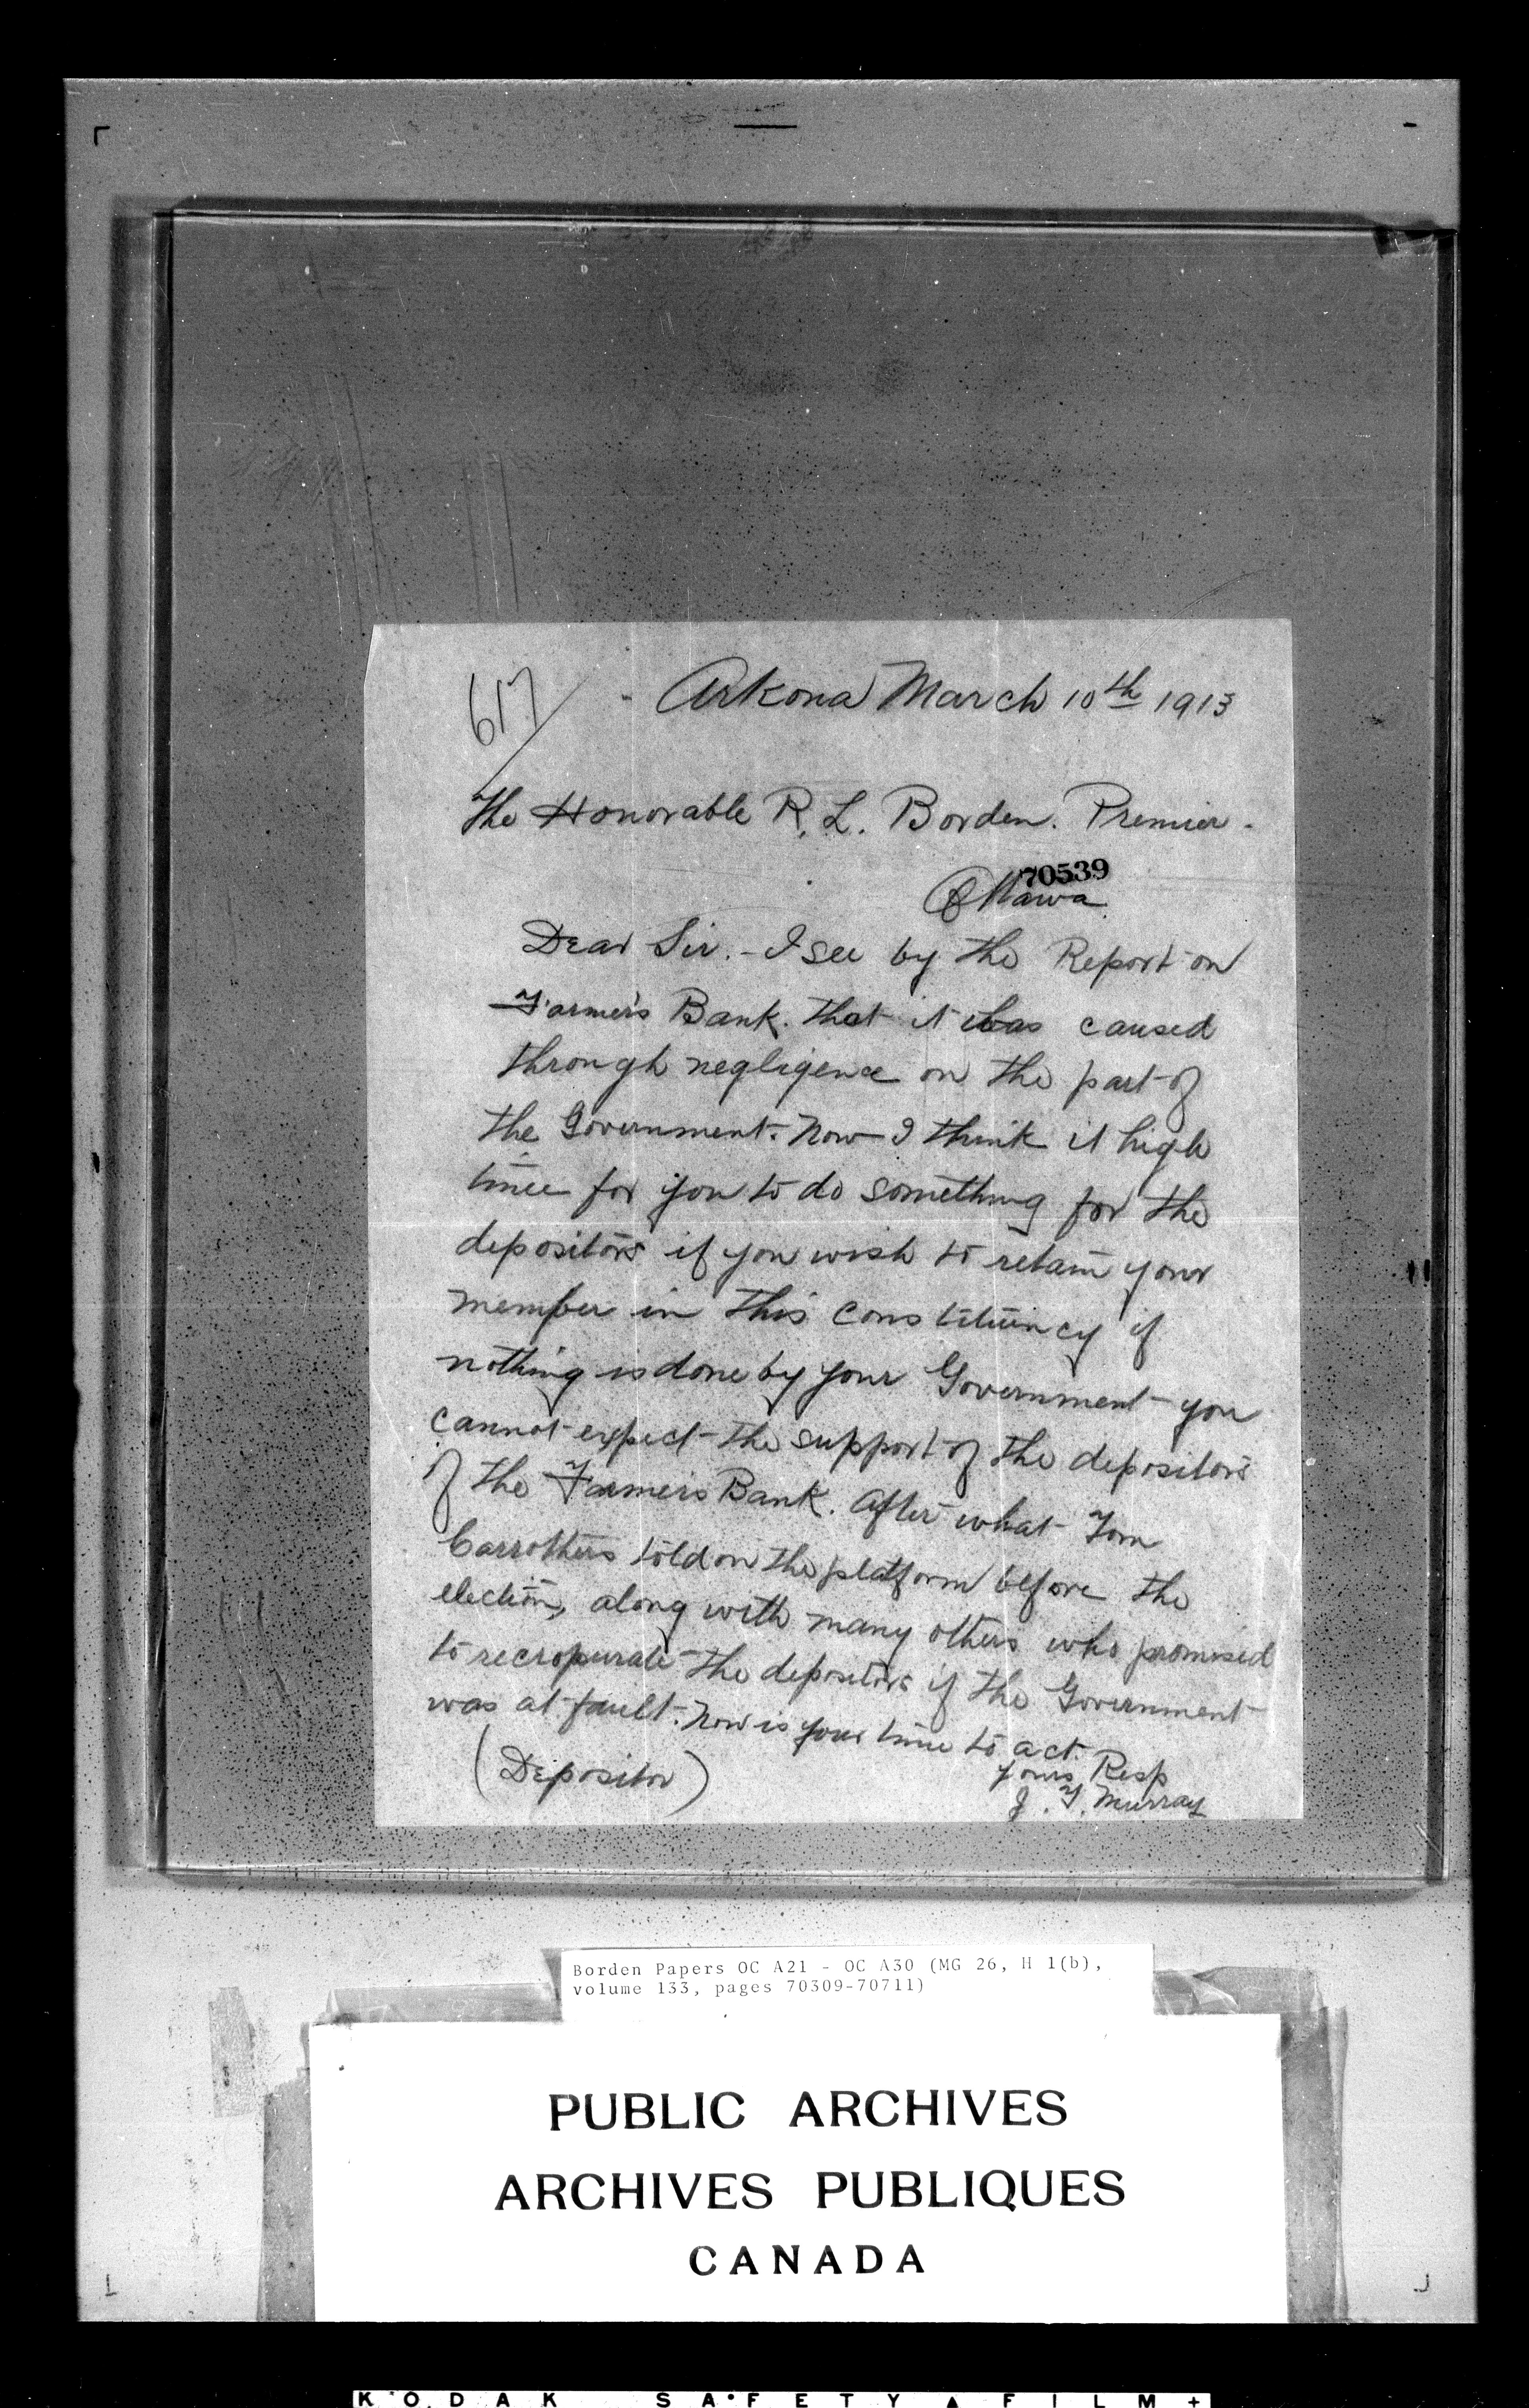 617
Arkona March 10th 1913
The Honorable R. L. Borden. Premier.
70539
Ottawa
Dear Sir. - I see by the Report on
Farmer's Bank. that it was caused
through negligence on the part of
the Government. Now I think it high
time for you to do something for the
depositors if you wish to retain your
member in this constituency if
nothing is done by your Government you
cannot expect the support of the depositors
of the Farmers Bank. After what Tom
Carrothers told on the platform before the
election, along with many others who promised
to recropurate the depositors if the Government
was at fault. Now is your time to act.
(Depositor)
Yours Resp
J. Y. Murray
Borden Papers OC A21 - OC A30 (MG 26, H 1(b),
volume 133, pages 70309-70711)
PUBLIC ARCHIVES
ARCHIVES PUBLIQUES
CANADA
KODAK SAFETY FILM